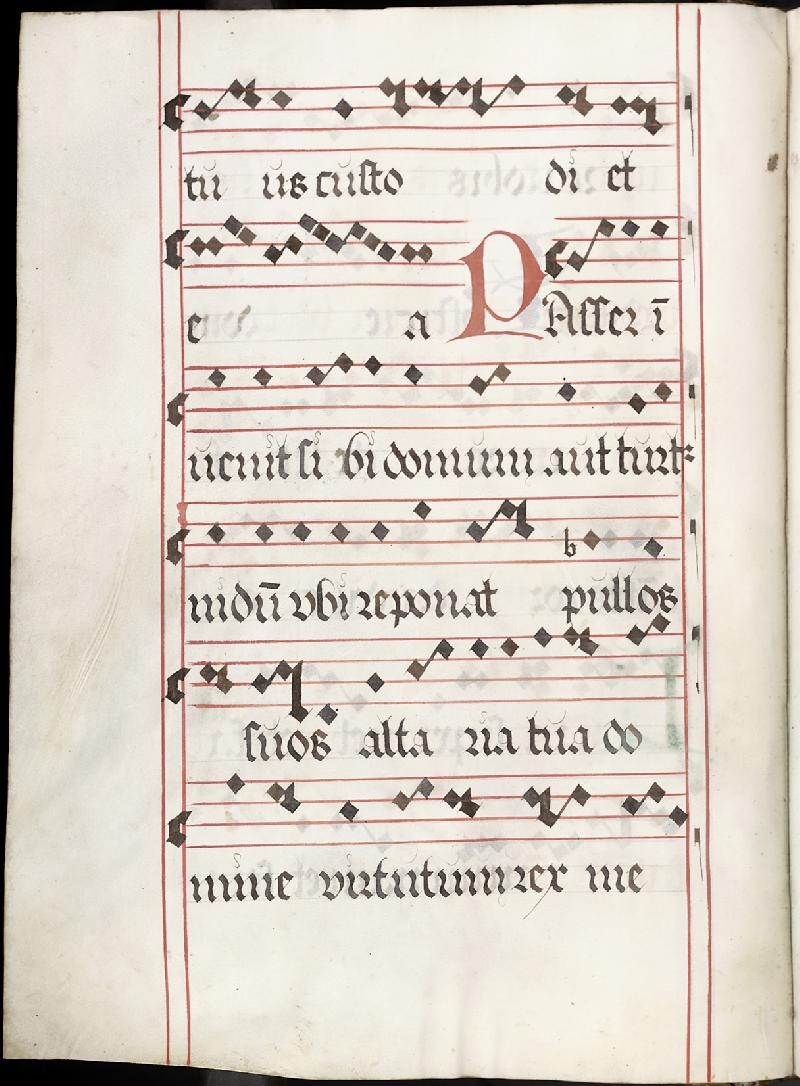 tu us custo di et
e a PAsser ī
uenit sibi domum aut turt
nidū vbi reponat pullos
suos alta ria tua do
mine virtutum rex me